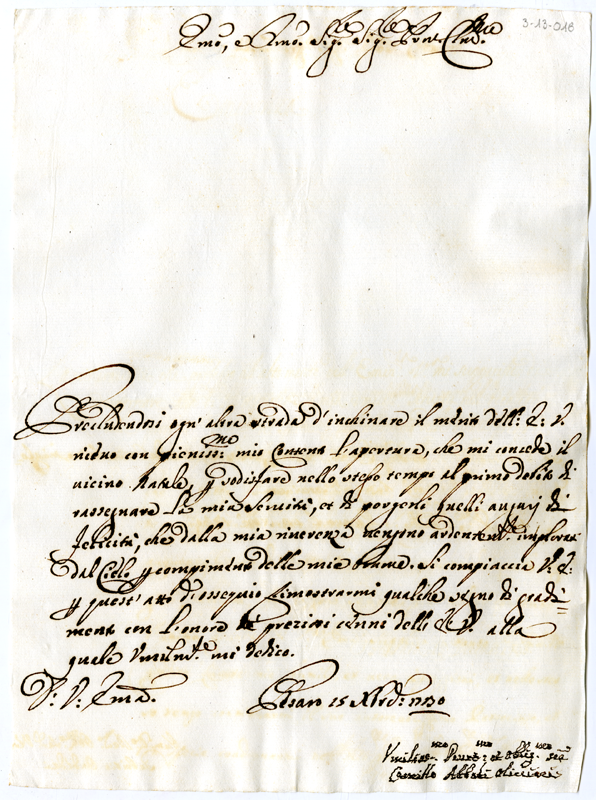 3-13-016
Illmo, e Rmo. Sig.re Sig.re Pron. Colmo.
Precludendosi ogn' altra strada d'inchinare il merito dell: E: V.
riceuo con pieniss:mo mio Contento l'apertura, che mi concede il
uicino Natale, p sodisfare nello stesso tempo al primo debito di
rassegnare Le mia Seruitù, et di porgerli quelli augurj di
felicità, che dalla mia riuerenza uengono ardentem.te implorati
dal Cielo p compimento delle mie brame. Si compiaccia V: E:
p quest' atto d'ossequio dimostrarmi qualche segno di gradi=
mento con l'onore de preziosi cenni dell: E: V. alla
quale Vmilm.te mi dedico.
D: V: Illma.
Pesaro 25 Xbre: 1730
Vmiliss.mo Deuot:mo et Oblig.mo Ser
Camillo Abbati Oliuieri